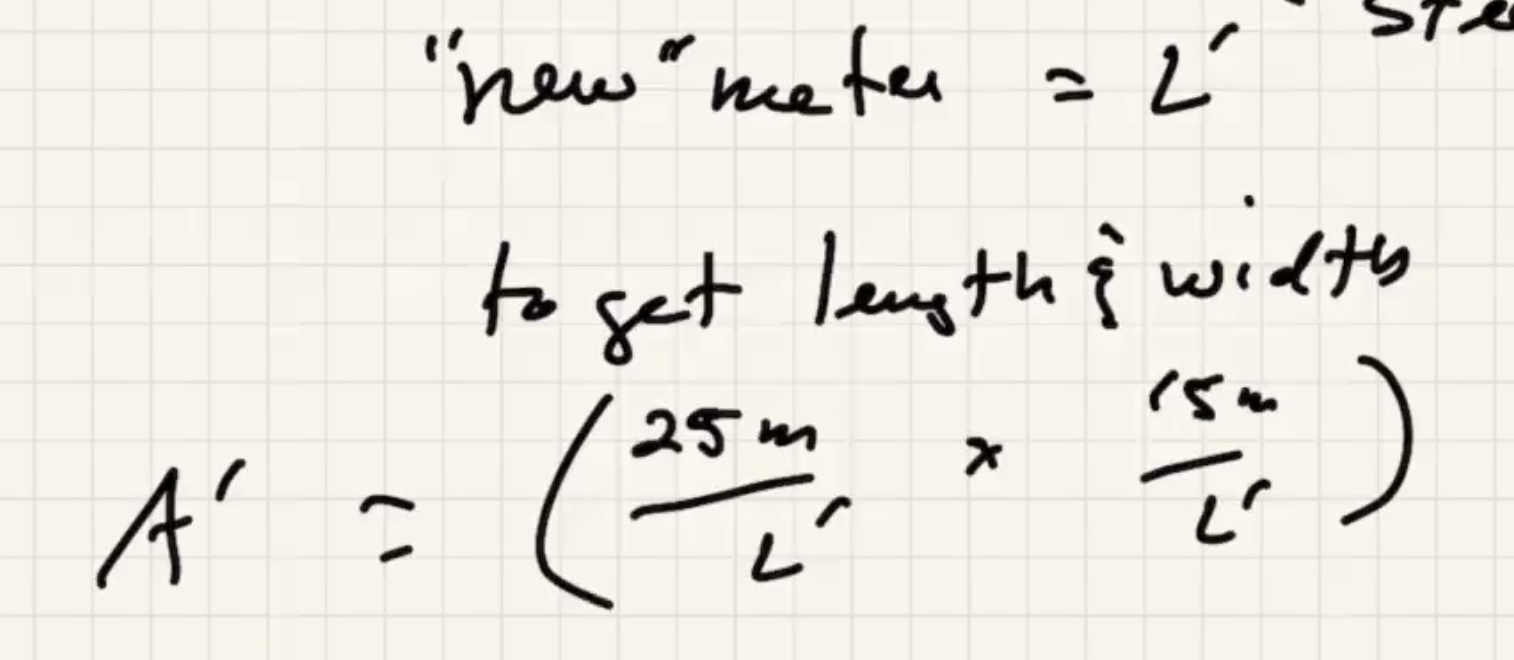 "new" meter = L'
to get length & width
A' = ( 25 m / L' x 15 m / L' )